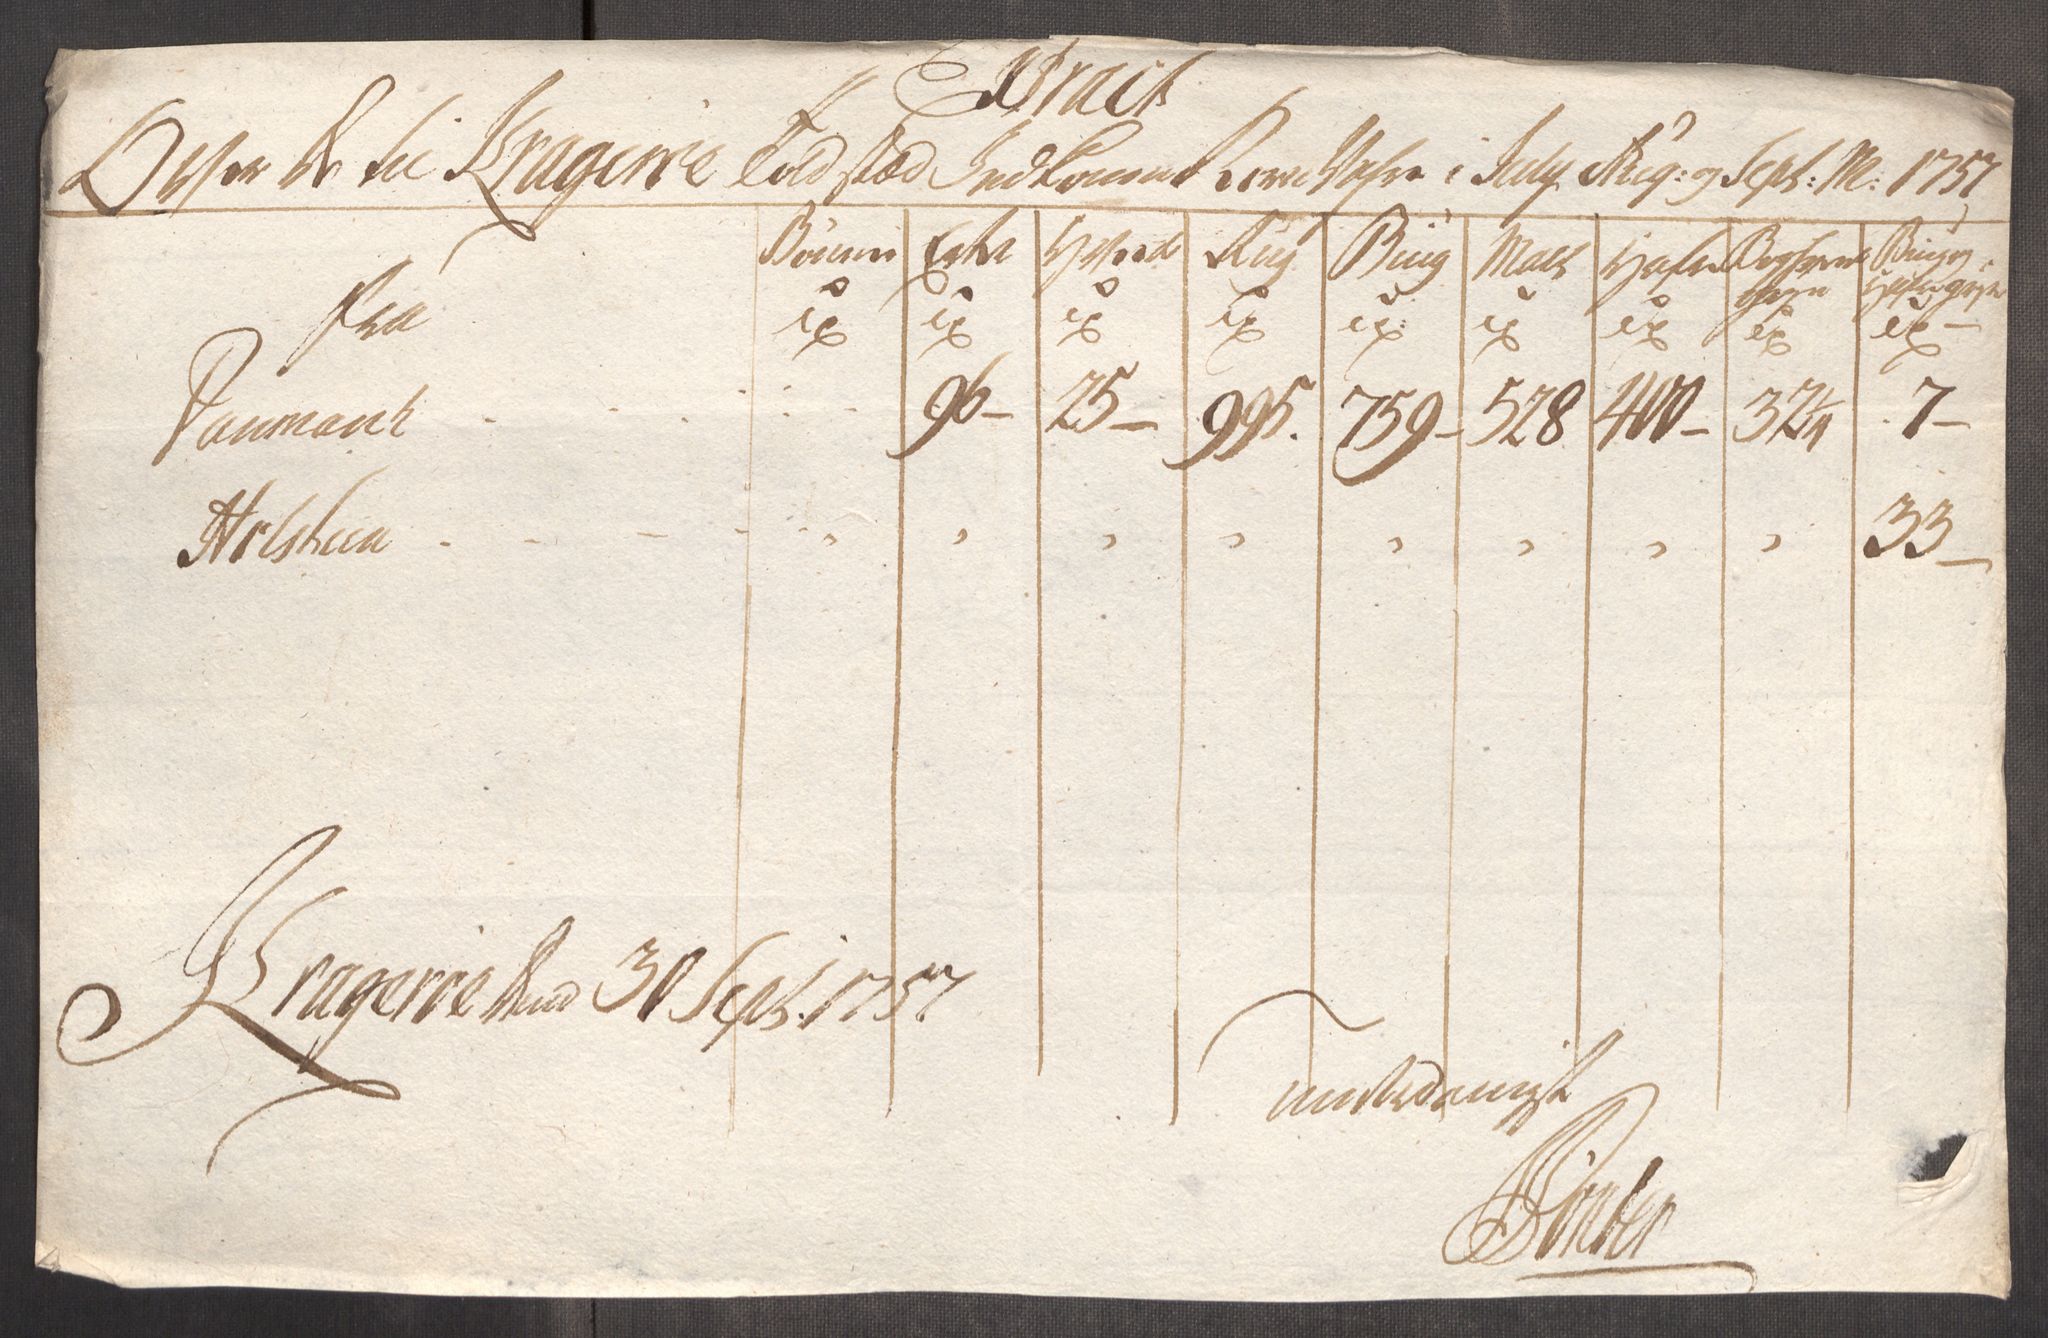 Extract
Over de til Kragerøe Told stæd Indkomne Korn Vahre i July Aug: og Sept: M: 1757
Fra Bønner Erter Hvede Rug Biug Malt Hafre Boghvede gryn Biug og Hafre gryn
Danmark - - - - - 96 - 25 - 995. 759 - 528 400 - 32 1/4 7 -
Holsteen - - - - " " " " " " " " 33 -
Kragerøe den 30 Sept. 1757.
underdanigst